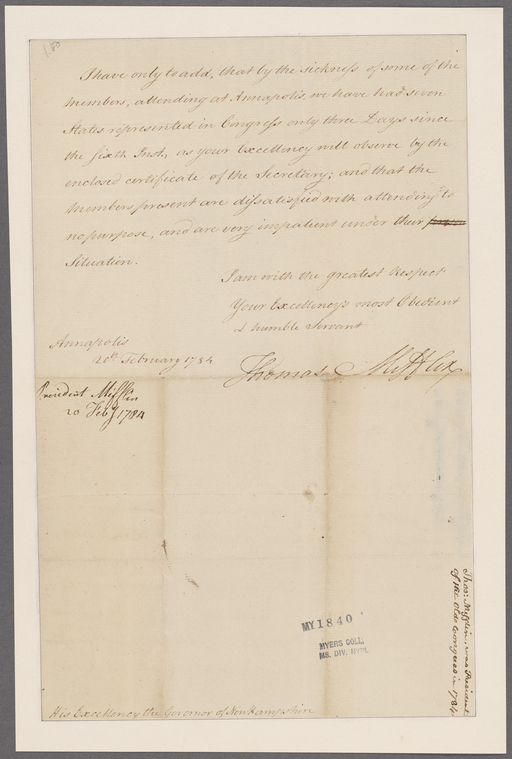 I have only to add, that by the sickness of some of the
Members, attending at Annapolis, we have had seven
States represented in Congress only three Days since
the sixth Inst., as your Excellency will observe by the
enclosed certificate of the Secretary; and that the
Members present are dissatisfied with attending to
no purpose, and are very impatient under their
Situation.
I am with the greatest Respect
Your Excellency's most Obedient
& humble Servant
Annapolis
20th February 1784
Thomas Mifflin
President Mifflin
20 Feby 1784
MY 1840
MYERS COLL.
MS. DIV. NYPL
Thos: Mifflin, was President
of the Old Congress in 1784
His Excellency the Governor of New Hampshire